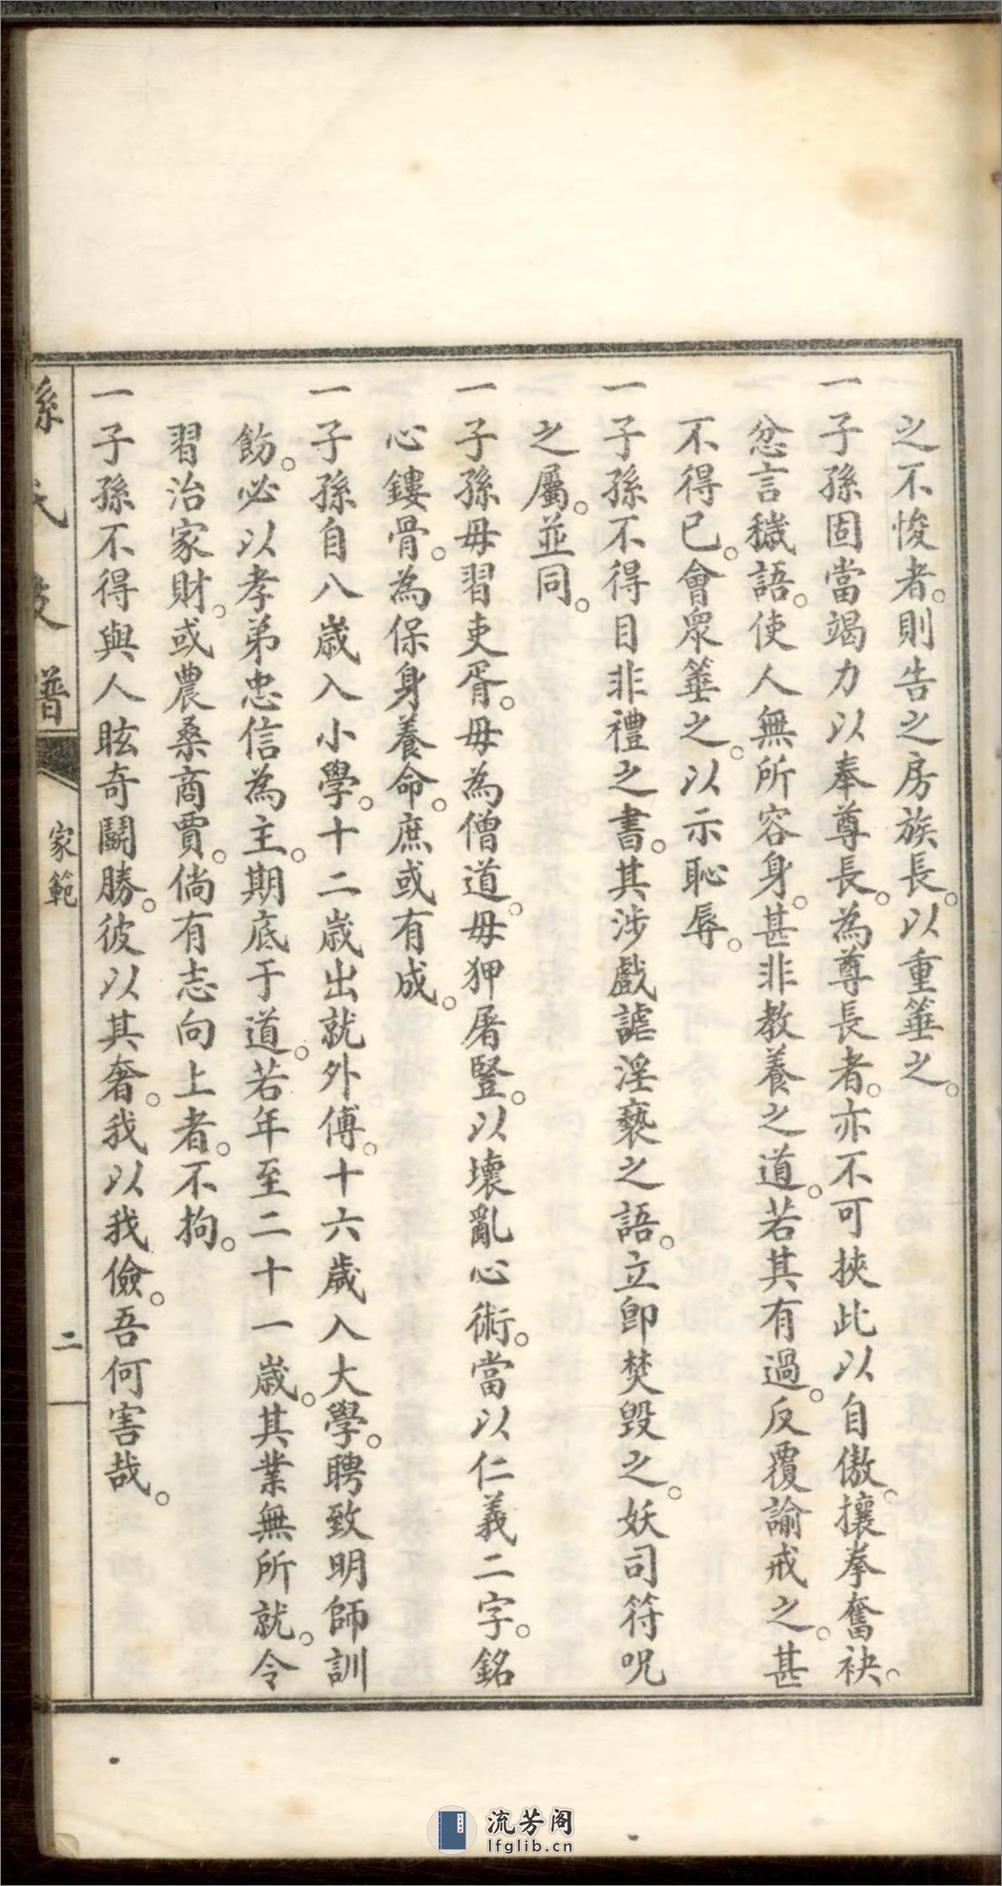 之不悛者。則告之房族長。以重箠之。
一子孫固當竭力以奉尊長。為尊長者。亦不可挾此以自傲。攘拳奮袂。
忿言穢語。使人無所容身。甚非教養之道。若其有過。反覆諭戒之。甚
不得已。會眾箠之。以示恥辱。
一子孫不得目非禮之書。其涉戲謔淫褻之語。立卽焚毀之。妖司符呪
之屬。並同。
一子孫毋習吏胥。毋為僧道。毋狎屠豎。以壞亂心術。當以仁義二字。銘
心鏤骨。為保身養命。庶或有成。
一子孫自八歲入小學。十二歲出就外傅。十六歲入大學。聘致明師訓
飭。必以孝弟忠信為主。期底于道。若年至二十一歲。其業無所就。令
習治家財。或農桑商賈。倘有志向上者。不拘。
一子孫不得與人眩奇鬬勝。彼以其奢。我以我儉。吾何害哉。
孫氏 譜
家範
二
流芳阁
lfglib.cn